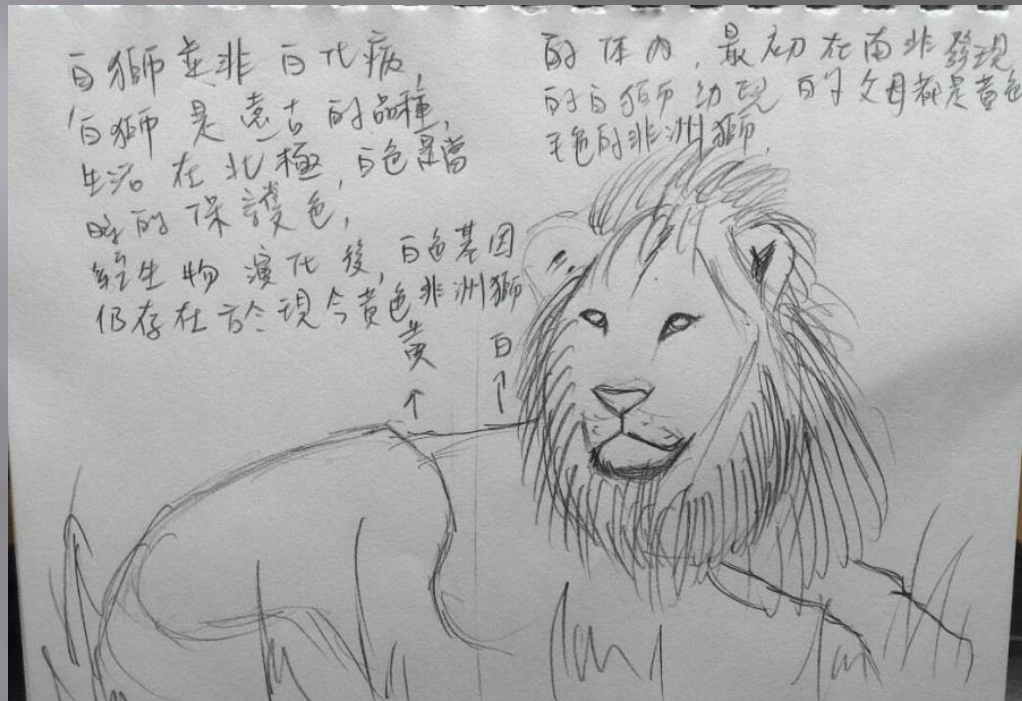 白獅並非白化病,
白獅是遠古的品種,
生活在北極,白色是當
時的保護色,
經生物演化後,白色基因
仍存在於現今黃色非洲獅
的体內,最初在南非發現
的白獅幼現 的父母都是黃色
毛色的非洲獅,
黃 白
↑ ↑